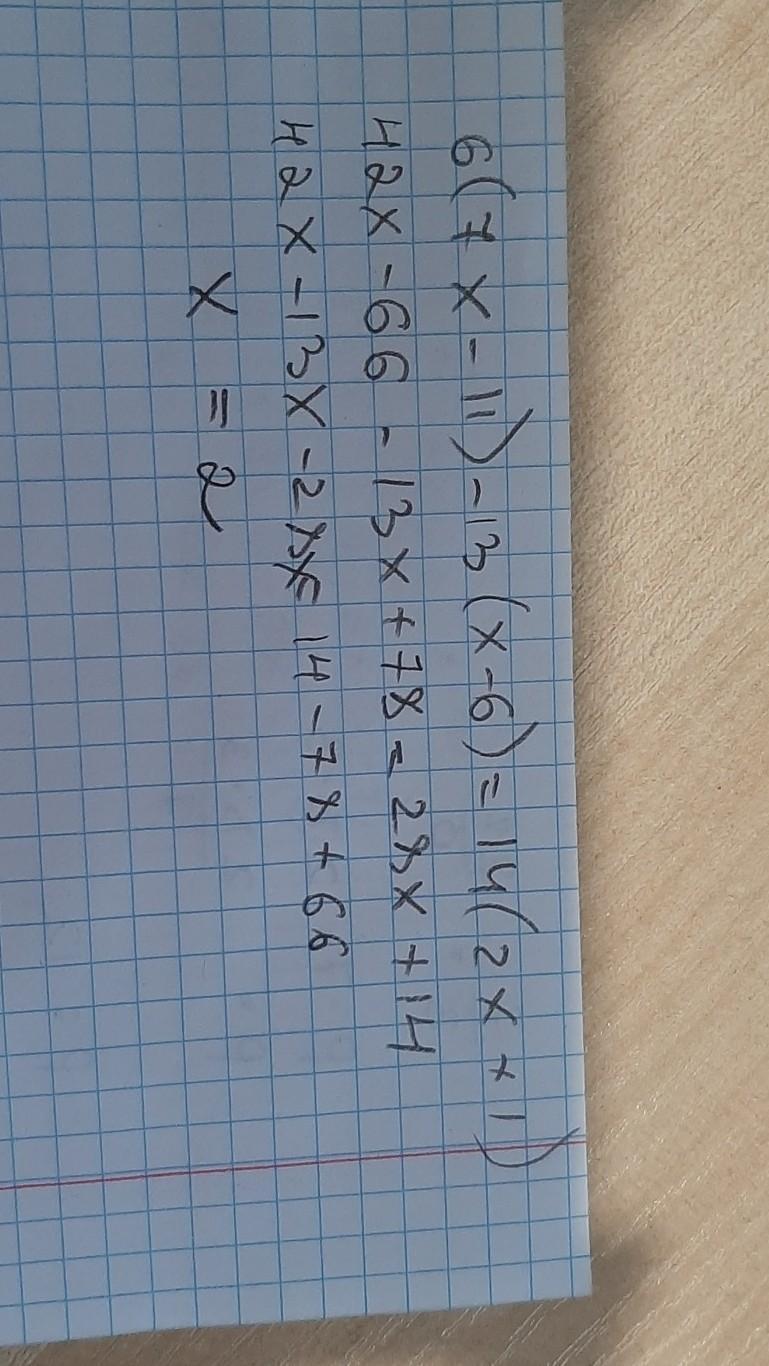 6(7x-11)-13(x-6)=14(2x+1)
42x-66-13x+78=28x+14
42x-13x-28x=14-78+66
x=2